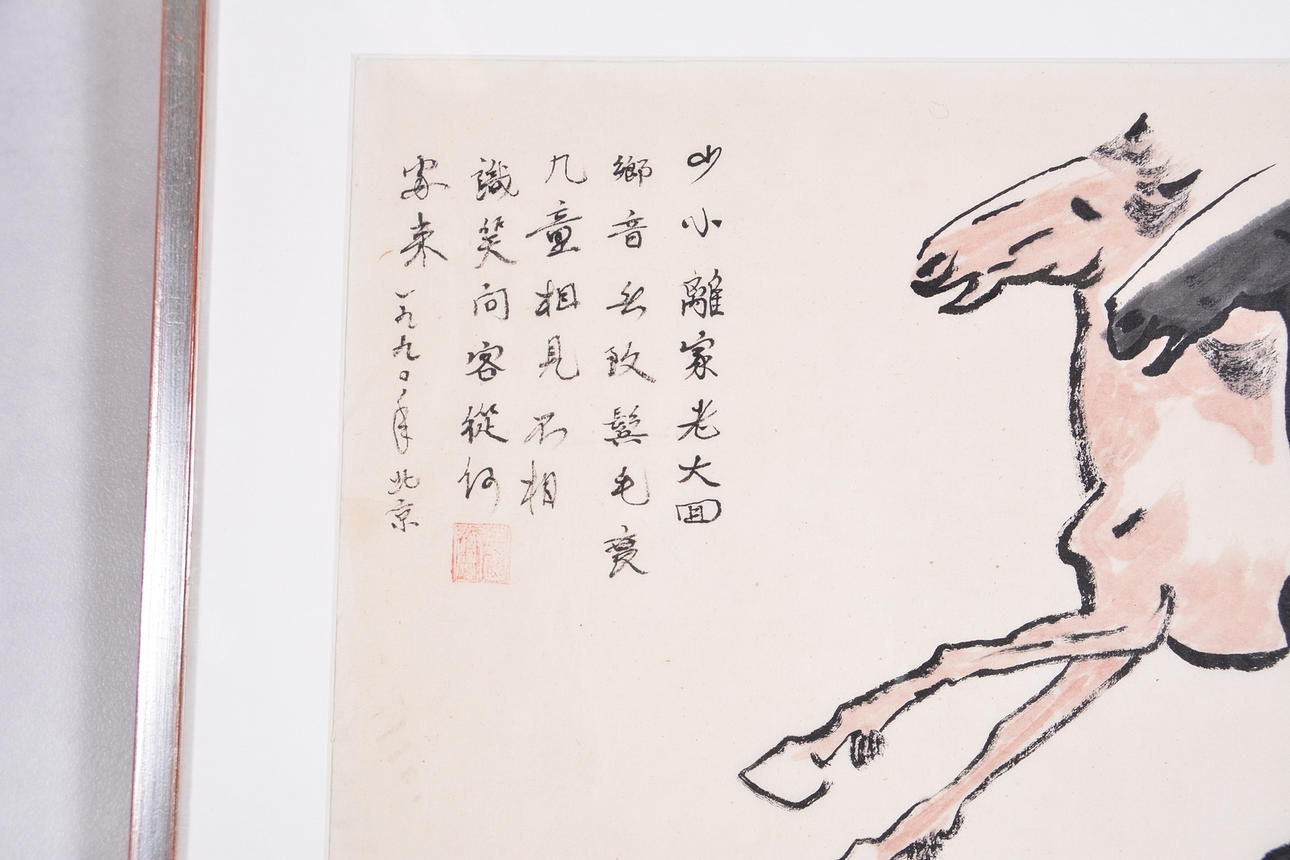 少小離家老大回
鄉音無改鬢毛衰
儿童相見不相
識笑问客從何
家来一九九〇年北京